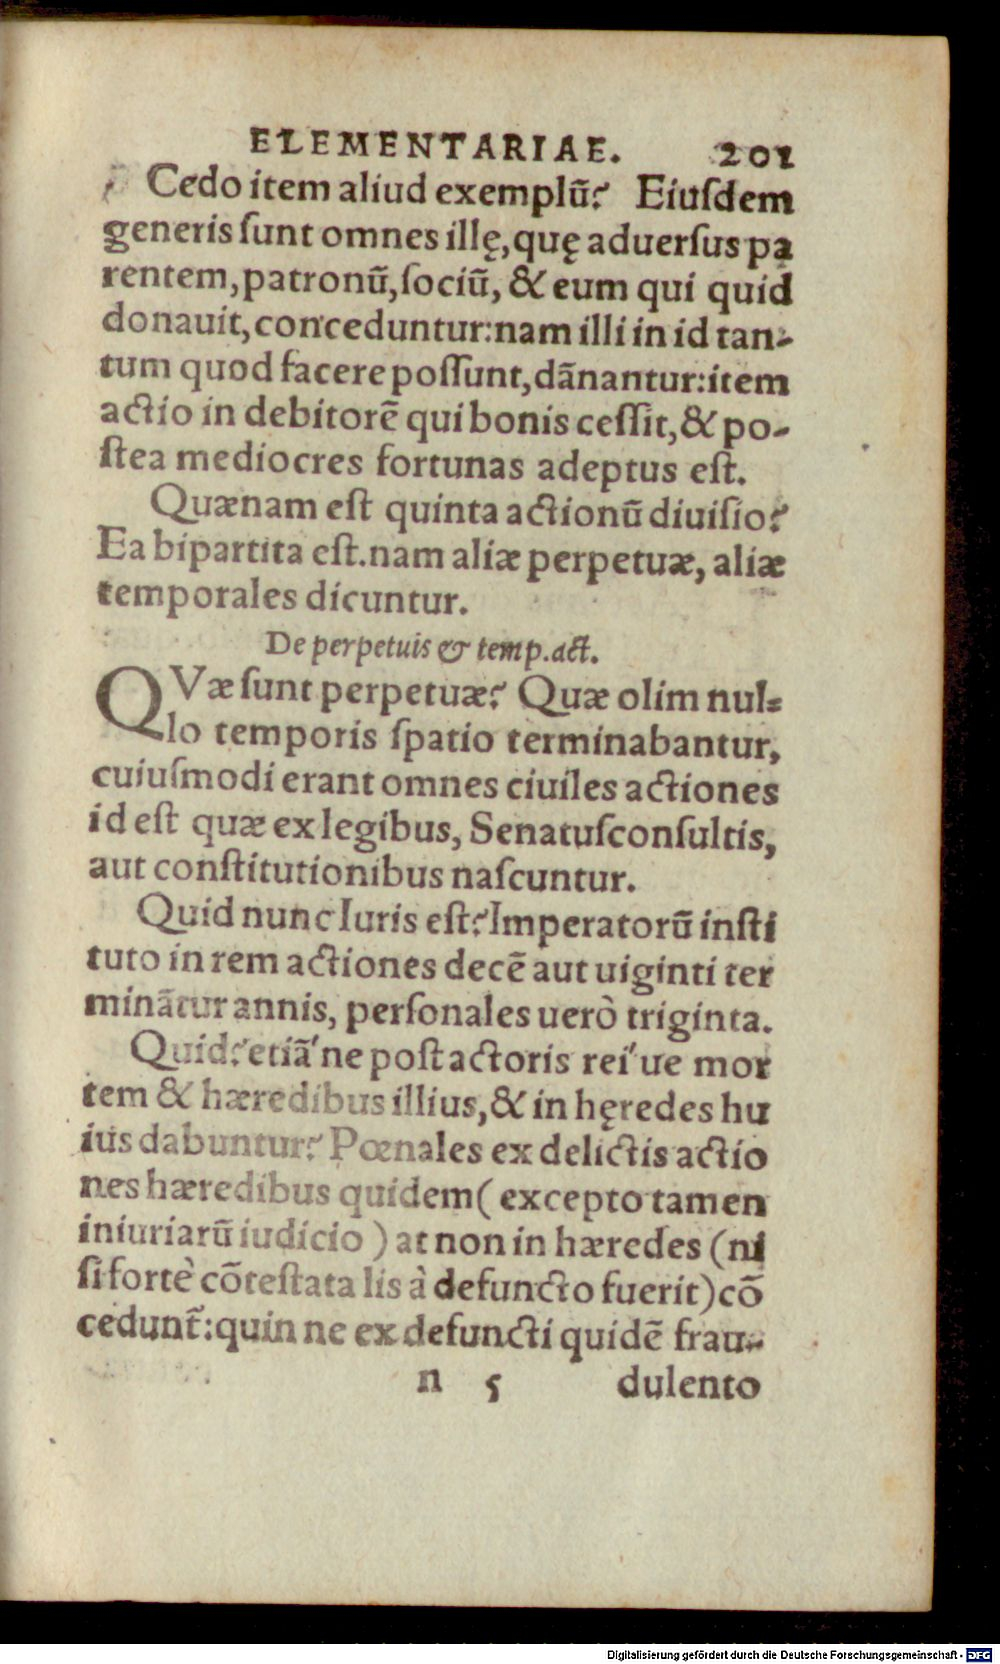 ELEMENTARIAE. 201
Cedo item aliud exemplũ? Eiuſdem
generis ſunt omnes illę, quę aduerſus pa
rentem, patronũ, ſociũ, & eum qui quid
donauit, conceduntur: nam illi in id tan-
tum quod facere poſſunt, dãnantur: item
actio in debitorẽ qui bonis ceſſit, & po-
ſtea mediocres fortunas adeptus eſt.
Quænam eſt quinta actionũ diuiſio?
Ea bipartita eſt. nam aliæ perpetuæ, aliæ
temporales dicuntur.
De perpetuis & temp. act.
QVæ ſunt perpetuæ? Quæ olim nul-
lo temporis ſpatio terminabantur,
cuiuſmodi erant omnes ciuiles actiones
id eſt quæ ex legibus, Senatuſconſultis,
aut conſtitutionibus naſcuntur.
Quid nunc Iuris eſt? Imperatorũ inſti
tuto in rem actiones decẽ aut uiginti ter
minãtur annis, perſonales uerò triginta.
Quid? etiã ne poſt actoris rei ue mor
tem & hæredibus illius, & in hęredes hu
ius dabuntur? Pœnales ex delictis actio
nes hæredibus quidem (excepto tamen
iniuriarũ iudicio) at non in hæredes (ni
ſi fortè cõteſtata lis à defuncto fuerit) cõ
cedunt̃: quin ne ex defuncti quidẽ frau-
n 5 dulento
Digitalisierung gefördert durch die Deutsche Forschungsgemeinschaft - DFG